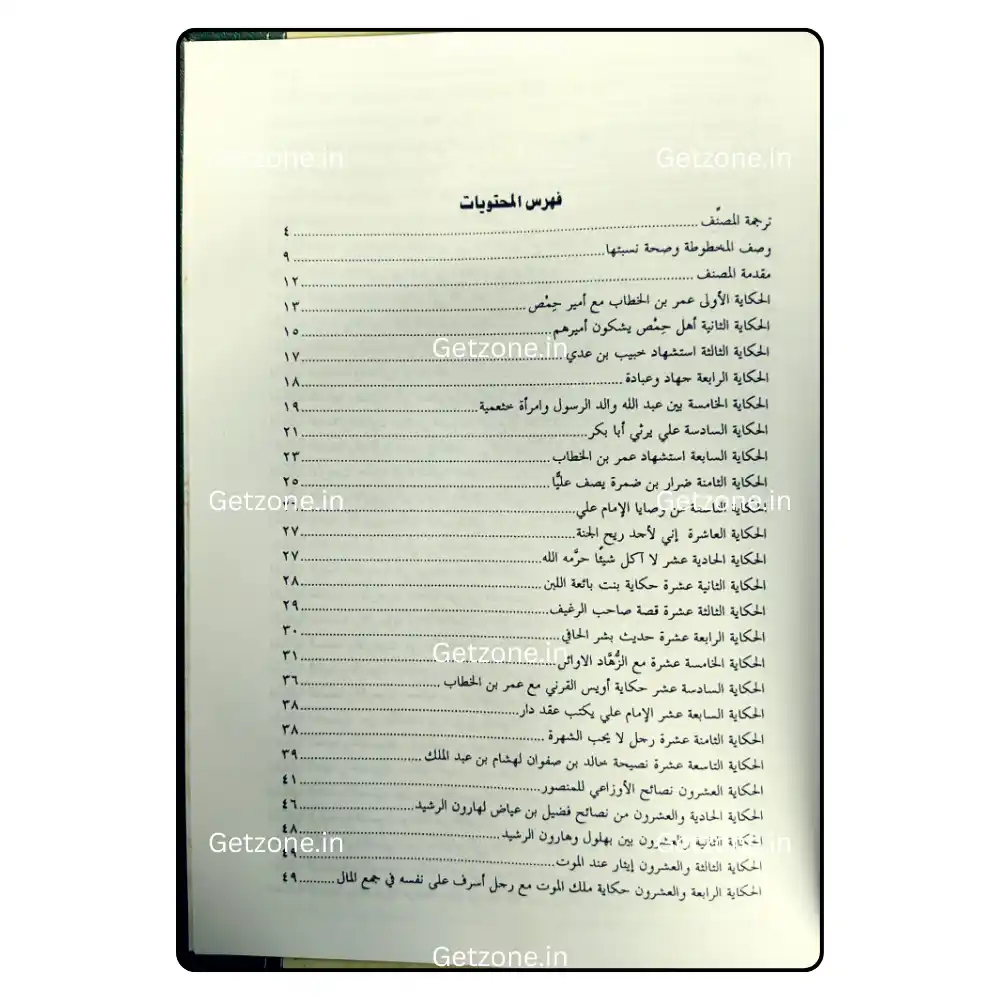 Getzone.in Getzone.in
فهرس المحتويات
ترجمة المصنِّف ٤
وصف المخطوطة وصحة نسبتها ٩
مقدمة المصنف ١٢
الحكاية الأولى عمر بن الخطاب مع أمير حِمْص ١٣
الحكاية الثانية أهل حِمْص يشكون أميرهم ١٥
Getzone.in
الحكاية الثالثة استشهاد خبيب بن عدي ١٧
الحكاية الرابعة جهاد وعبادة ١٨
الحكاية الخامسة بين عبد الله والد الرسول وامرأة خثعمية ١٩
الحكاية السادسة علي يرثي أبا بكر ٢١
الحكاية السابعة استشهاد عمر بن الخطاب ٢٣
الحكاية الثامنة ضرار بن ضمرة يصف عليًّا ٢٥
Getzone.in Getzone.in
الحكاية التاسعة من وصايا الإمام علي
الحكاية العاشرة إني لأجد ريح الجنة ٢٧
الحكاية الحادية عشر لا آكل شيئًا حرَّمه الله ٢٧
الحكاية الثانية عشرة حكاية بنت بائعة اللبن ٢٨
الحكاية الثالثة عشرة قصة صاحب الرغيف ٢٩
الحكاية الرابعة عشرة حديث بشر الحافي ٣٠
Getzone.in
الحكاية الخامسة عشرة مع الزُّهَّاد الاوائل ٣١
الحكاية السادسة عشر حكاية أويس القرني مع عمر بن الخطاب ٣٦
الحكاية السابعة عشر الإمام علي يكتب عقد دار ٣٨
الحكاية الثامنة عشرة رجل لا يحب الشهرة ٣٨
الحكاية التاسعة عشرة نصيحة خالد بن صفوان لهشام بن عبد الملك ٣٩
الحكاية العشرون نصائح الأوزاعي للمنصور ٤١
الحكاية الحادية والعشرون من نصائح فضيل بن عياض لهارون الرشيد ٤٦
الحكاية الثانية والعشرون بين بهلول وهارون الرشيد ٤٨
Getzone.in Getzone.in
الحكاية الثالثة والعشرون إيثار عند الموت ٤٩
الحكاية الرابعة والعشرون حكاية ملك الموت مع رجل أسرف على نفسه في جمع المال ٤٩
Getzone.in